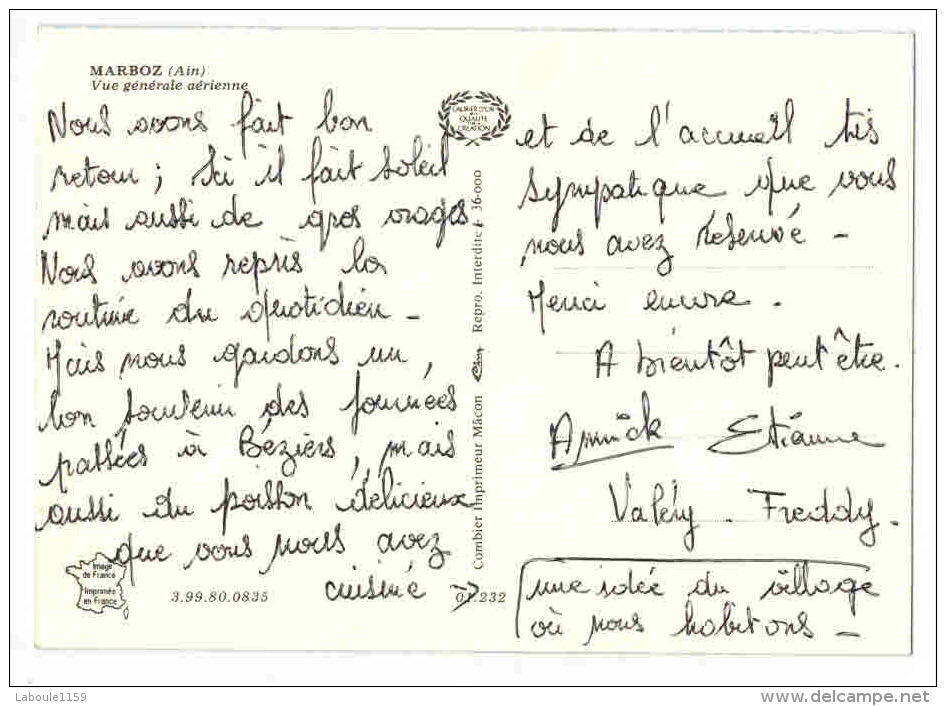 MARBOZ (Ain)
Vue générale aérienne
Nous avons fait bon
retour ; Ici il fait soleil
mais aussi de gros orages
Nous avons repris la
routine du quotidien -
Mais nous gardons un,
bon souvenir des journées
passées à Béziers, mais
aussi du poisson délicieux
que vous nous avez
cuisiné
LAURIER D'OR
DE LA
QUALITE
CREATION
Combier Imprimeur Mâcon Repro. Interdite - 36-000
et de l'accueil très
sympatique que vous
nous avez réservé -
Merci encore.
A bientôt peut être.
Annick Etienne
Valéry. Freddy.
une idée du village
où nous habitons -
Image
de France
Imprimée
en France
3.99.80.0835
01.232
Laboule1159
www.delcampe.net